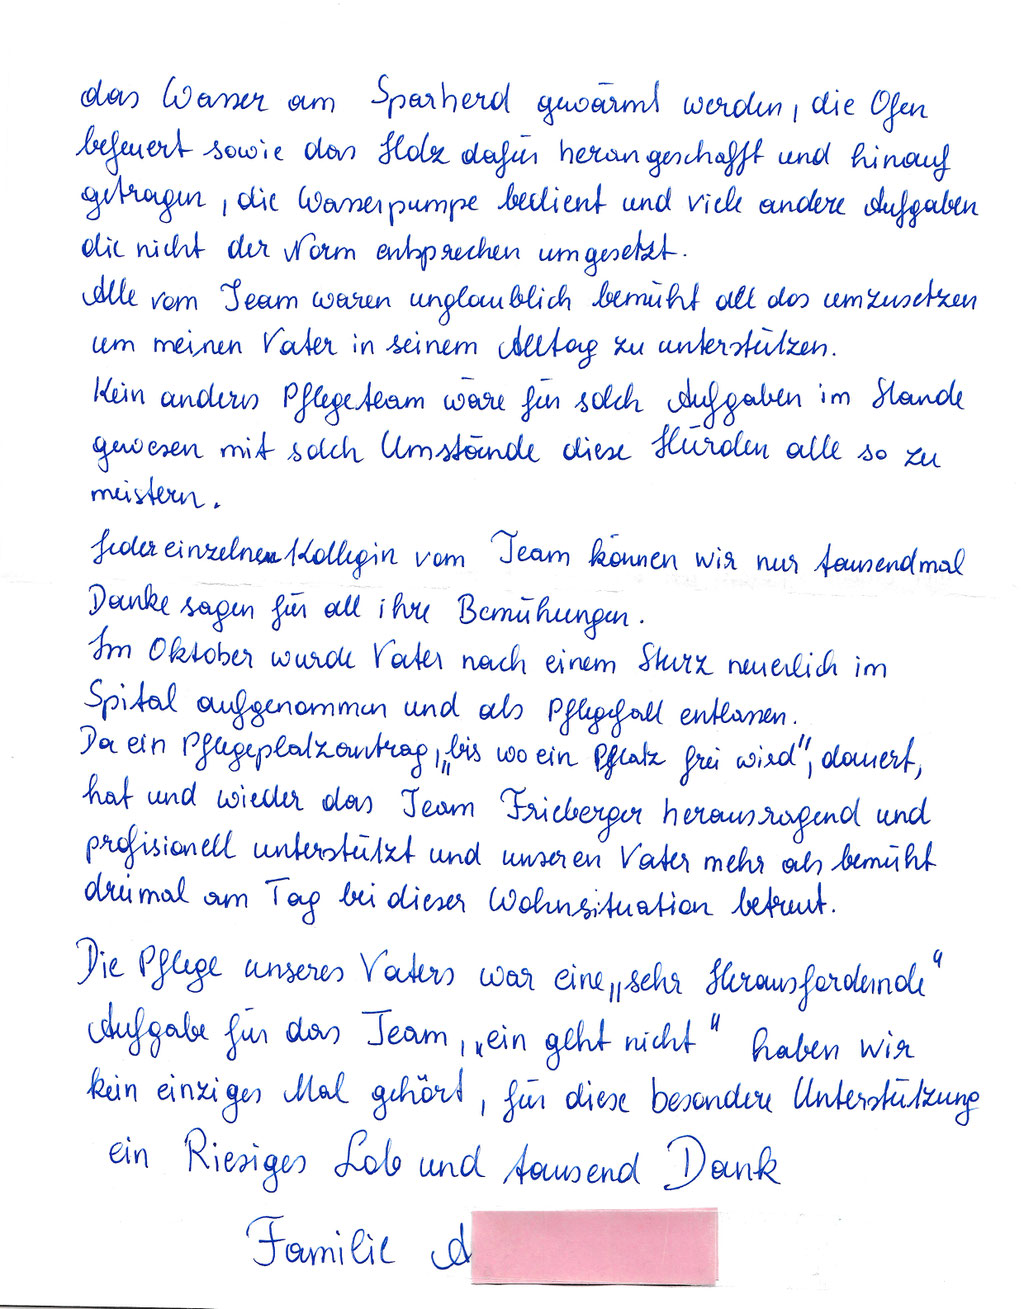 das Wasser am Sparherd gewärmt werden, die Ofen
befeuert sowie das Holz dafür herangeschafft und hinauf
getragen, die Wasserpumpe bedient und viele andere Aufgaben
die nicht der Norm entsprechen umgesetzt.
Alle vom Team waren unglaublich bemüht all das umzusetzen
um meinen Vater in seinem Alltag zu unterstützen.
Kein anderes Pflegeteam wäre für solch Aufgaben im Stande
gewesen mit solch Umstände diese Hürden alle so zu
meistern.
Jeder einzelnen Kollegin vom Team können wir nur tausendmal
Danke sagen für all ihre Bemühungen.
Im Oktober wurde Vater nach einem Sturz neuerlich im
Spital aufgenommen und als Pflegefall entlassen.
Da ein Pflegeplatzantrag, „bis wo ein Pflatz frei wird", dauert,
hat und wieder das Team Frieberger herausragend und
profisionell unterstützt und unseren Vater mehr als bemüht
dreimal am Tag bei dieser Wohnsituation betreut.
Die Pflege unseres Vaters war eine „sehr Herausfordernde"
Aufgabe für das Team, „ein geht nicht" haben wir
kein einziges Mal gehört, für diese besondere Unterstützung
ein Riesiges Lob und tausend Dank
Familie A